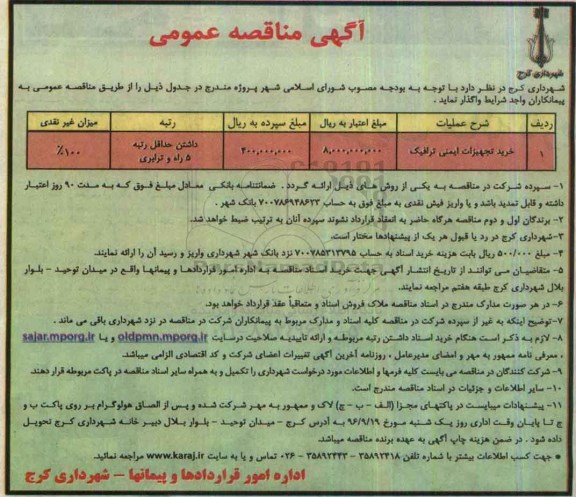 آگهی مناقصه عمومی
شهرداری کرج
شهرداری کرج در نظر دارد با توجه به بودجه مصوب شورای اسلامی شهر پروژه مندرج در جدول ذیل را از طریق مناقصه عمومی به
پیمانکاران واجد شرایط واگذار نماید .
ردیف شرح عملیات مبلغ اعتبار به ریال مبلغ سپرده به ریال رتبه میزان غیر نقدی
۱ خرید تجهیزات ایمنی ترافیک ۸,۰۰۰,۰۰۰,۰۰۰ ۴۰۰,۰۰۰,۰۰۰ داشتن حداقل رتبه ۵ راه و ترابری ٪۱۰۰
۱- سپرده شرکت در مناقصه به یکی از روش های ذیل ارائه گردد . ضمانتنامه بانکی معادل مبلغ فوق که به مدت ۹۰ روز اعتبار
داشته و قابل تمدید باشد و یا واریز فیش نقدی به مبلغ فوق به حساب ۷۰۰۷۸۶۹۴۸۶۲۳ بانک شهر .
۲- برندگان اول و دوم مناقصه هرگاه حاضر به انعقاد قرارداد نشوند سپرده آنان به ترتیب ضبط خواهد شد.
۳-شهرداری کرج در رد یا قبول هر یک از پیشنهادها مختار است.
۴- مبلغ ۵۰۰/۰۰۰ ریال بابت هزینه خرید اسناد به حساب ۷۰۰۷۸۵۳۱۳۷۹۵ نزد بانک شهر شهرداری واریز و رسید آن را ارائه نمایند.
۵- متقاضیان می توانند از تاریخ انتشار آگهی جهت خرید اسناد مناقصه به اداره امور قراردادها و پیمانها واقع در میدان توحید - بلوار
بلال شهرداری کرج طبقه هفتم مراجعه نمایند.
۶- در هر صورت مدارک مندرج در اسناد مناقصه ملاک فروش اسناد و متعاقباً عقد قرارداد خواهد بود.
۷-توضیح اینکه به غیر از سپرده شرکت در مناقصه کلیه اسناد و مدارک مربوط به پیمانکاران شرکت در مناقصه در نزد شهرداری باقی می ماند .
۸- لازم به ذکر است هنگام خرید اسناد داشتن رتبه مربوطه و ارائه تاییدیه صلاحیت درسایت oldpmn.mporg.ir و یا sajar.mporg.ir
، معرفی نامه ممهور به مهر و امضای مدیرعامل ، روزنامه آخرین آگهی تغییرات اعضای شرکت و کد اقتصادی الزامی میباشد.
۹- شرکت کنندگان در مناقصه می بایست کلیه فرمها و اطلاعات مورد درخواست شهرداری را تکمیل و به همراه سایر اسناد مناقصه در پاکت مربوطه قرار دهند.
۱۰- سایر اطلاعات و جزئیات در اسناد مناقصه مندرج است.
۱۱- پیشنهادات میبایست در پاکتهای مجزا (الف - ب - ج) لاک و ممهور به مهر شرکت شده و پس از الصاق هولوگرام بر روی پاکت ب و
ج تا پایان وقت اداری روز یک شنبه مورخ ۹۶/۹/۱۹ به آدرس کرج - میدان توحید - بلوار بلال دبیر خانه شهرداری کرج تحویل
داده شود . در ضمن هزینه چاپ آگهی به عهده برنده مناقصه میباشد.
• جهت کسب اطلاعات بیشتر با شماره تلفن ۳۵۸۹۲۴۱۸ - ۳۵۸۹۲۴۴۳ - ۰۲۶ تماس و یا به سایت www.karaj.ir مراجعه نمائید.
اداره امور قراردادها و پیمانها – شهرداری کرج